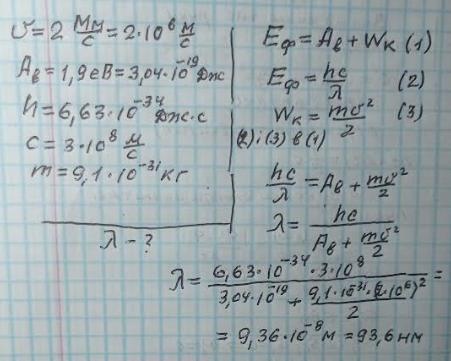 v = 2 Мм/с = 2·10⁶ м/с
Aв = 1,9 еВ = 3,04·10⁻¹⁹ Дж
h = 6,63·10⁻³⁴ Дж·с
c = 3·10⁸ м/с
m = 9,1·10⁻³¹ кг
λ - ?
Eф = Aв + Wк (1)
Eф = hc/λ (2)
Wк = mv²/2 (3)
(2) і (3) в (1)
hc/λ = Aв + mv²/2
λ = hc/(Aв + mv²/2)
λ = 6,63·10⁻³⁴·3·10⁸/(3,04·10⁻¹⁹ + 9,1·10⁻³¹·(2·10⁶)²/2) =
= 9,36·10⁻⁸ м = 93,6 нм